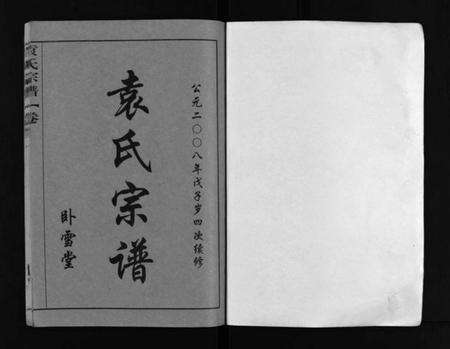 公元二〇〇八年戊子岁四次续修
袁氏宗谱
卧雪堂
袁氏宗谱一卷